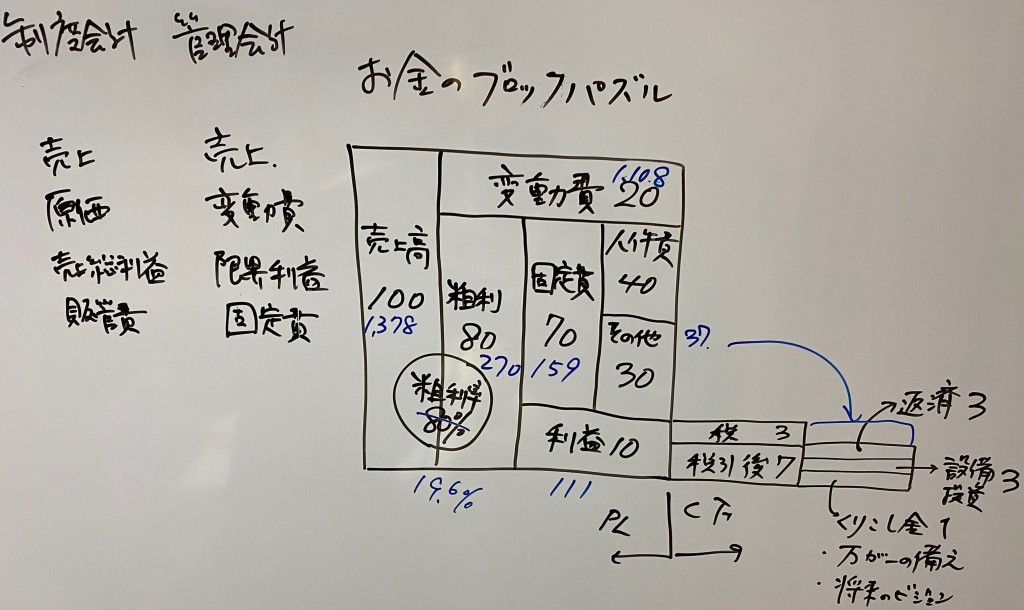 制度会計 管理会計
お金のブロックパズル
売上 売上.
原価 変動費
売上総利益 限界利益
販管費 固定費
変動費 20
1,108
売上高
100
1,378
粗利
80
270
粗利率
80%
19.6%
固定費
70
159
人件費
40
その他
30
37.
利益 10
111
税 3
税引後 7
返済 3
設備投資 3
くりこし金 1
・万が一の備え
・将来のビジョン
PL CF